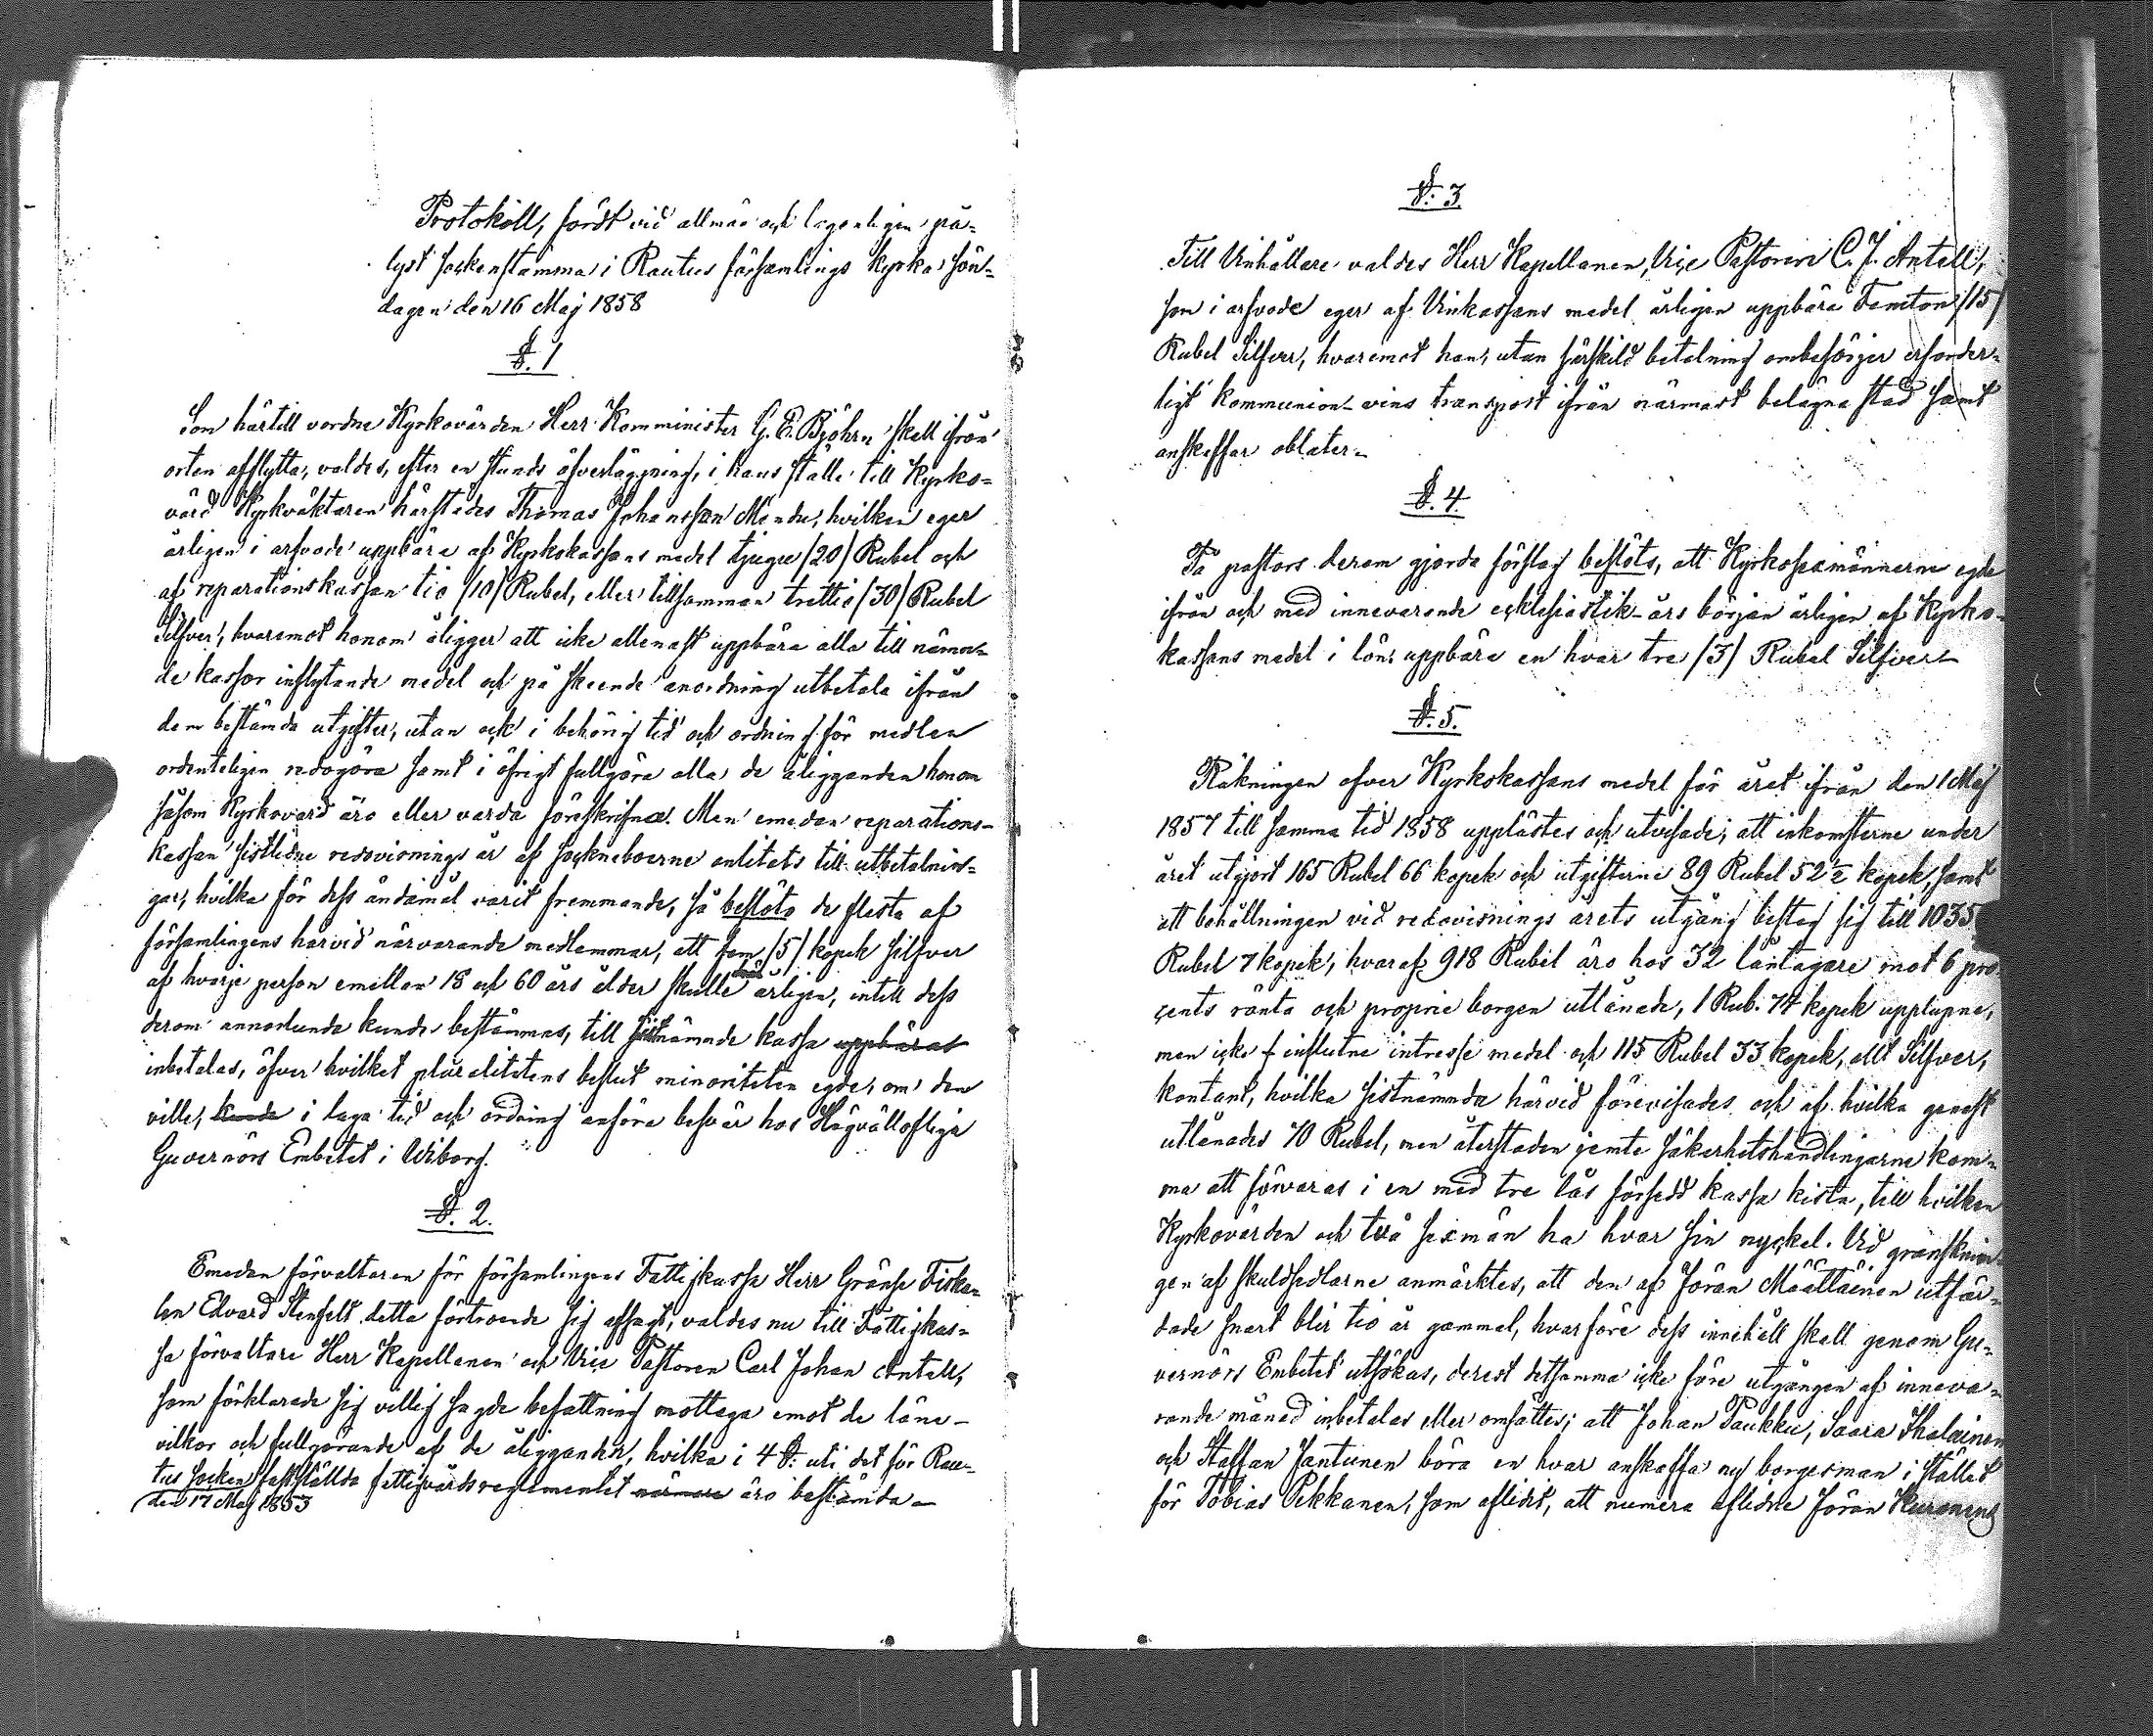 Protokoll, fördt vid allmän och lagenligen på-
lyst sockenstämma i Rautus församlings kyrka sön-
dagen den 16 Maj 1858
§. 1
Som härtill vordne Kyrkovärden Herr Komminister G. E. Björhn skall ifrån
orten afflytta, valdes, efter en stunds öfverläggning, i hans ställe till Kyrko-
värd Kyrkväktaren härstädes Thomas Johansson Mendu, hvilken eger
årligen i arfvode uppbära af Kyrkokassans medel tjugu /20/ Rubel och
af reparationskassan tio /10/ Rubel, eller tillsamman trettio /30/ Rubel
Silfver, hvaremot honom åligger att icke allenast uppbära alla till nämn-
de kassor inflytande medel och på skeende anordning utbetala ifrån
dem bestämda utgifter, utan ock i behörig tid och ordning för medlen
ordenteligen redogöra samt i öfrigt fullgöra alla de åligganden honom
såsom Kyrkovärd äro eller varda föreskrifna. Men emedan reparations-
kassan sistledne redovisnings år af socknboerne anlitats till utbetalnin-
gar, hvilka för dess ändamål varit främmande, så beslöto de flesta af
församlingens härvid närvarande medlemmar, att fem /5/ kopek silfver
af hvarje person emillan 18 och 60 års ålder skulle årligen, intill dess
derom annorlunda kunde bestämmas, till sistnämnde kassa uppbäras
inbetalas, öfver hvilket pluralitetens beslut minoriteten egde, om den
ville, kunde i laga tid och ordning anföra besvär hos Högvällofliga
Guvernörs Embetet i Wiborg.
§. 2.
Emedan förvaltaren för församlingens Fattigkassa Herr Gränse Fiska-
len Edvard Stenfelt detta förtroende sig afsagt, valdes nu till Fattigkas-
sa förvaltare Herr Kapellanen och Vice Pastoren Carl Johan Antell,
som förklarade sig villig sagde befattning mottaga emot de löne-
vilkor och fullgörande af de åligganden, hvilka i 4 §: uti det för Rau-
tus socken fastställda fattigvårdsreglementet närmare äro bestämda
den 17 Maj 1853
§. 3
Till Vinhållare valdes Herr Kapellanen, Vice Pastoren C. J. Antell,
som i arfvode eger af Vinkassans medel årligen uppbära Femton /15/
Rubel Silfver, hvaremot han, utan särskild betalning ombesörjer erforder-
ligt kommunion-vins transport ifrån närmast belägna stad samt
anskaffar oblater.
§. 4.
På pastors derom gjorda förslag beslöts, att Kyrkosexmännerne egde
ifrån och med innevarande ecklesiastik-års början årligen af Kyrko-
kassans medel i lön uppbära en hvar tre /3/ Rubel Silfver
§. 5.
Räkningen öfver Kyrkokassans medel för året ifrån den 1 Maj
1857 till samma tid 1858 upplästes och utvisade, att inkomsterne under
året utgjort 165 Rubel 66 kopek och utgifterne 89 Rubel 52 ½ kopek, samt
att behållningen vid redovisnings årets utgång besteg sig till 1035
Rubel 7 kopek, hvaraf 918 Rubel äro hos 32 låntagare mot 6 pro
cents ränta och proprie borgen utlånade, 1 Rub. 74 kopek upplupne,
men icke influtne intresse medel och 115 Rubel 33 kopek, allt Silfver,
kontant, hvilka sistnämnda härvid förevisades och af hvilka genast
utlånades 70 Rubel, men återstoden jemte säkerhetshandlingarne kom-
ma att förvaras i en med tre lås försedd kassa kista, till hvilken
Kyrkovärden och två sexmän ha hvar sin nyckel. Vid gransknin-
gen af skuldsedlarne anmärktes, att den af Jöran Määttäinen utfär-
dade snart blir tio år gammal, hvarföre dess innehåll skall genom Gu-
vernörs Embetet utsökas, derest detsamma icke före utgången af inneva-
rande månad inbetalas eller omsättes; att Johan Paukku, Saara Ihalainen
och Staffan Jantunen böra en hvar anskaffa ny borgesman i stället
för Tobias Pekkanen, som aflidit, att numera aflidne Jöran Kuronens